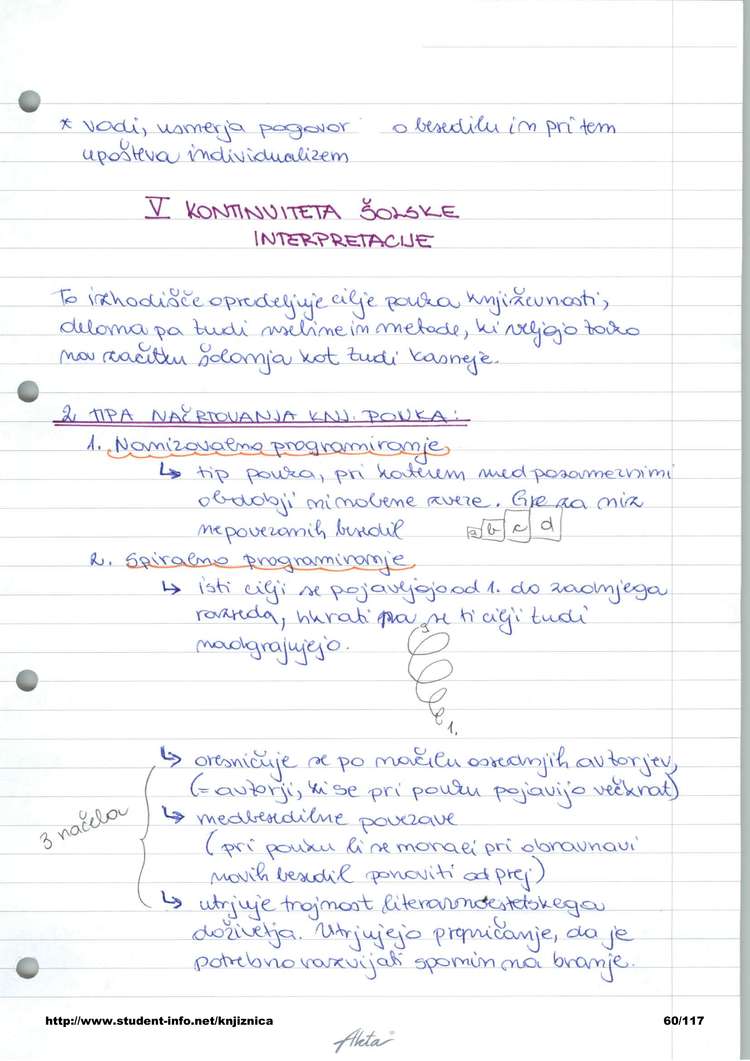 * vodi, usmerja pogovor o besedilu in pri tem
upošteva individualizem
V KONTINUITETA ŠOLSKE
INTERPRETACIJE
To izhodišče opredeljuje cilje pouka književnosti,
deloma pa tudi vsebine in metode, ki veljajo tako
na začetku šolanja kot tudi kasneje.
2 TIPA NAČRTOVANJA KNJ. POUKA:
1. Nanizovalno programiranje
↳ tip pouka, pri katerem med posameznimi
obdobji ni nobene zveze. Gre za niz
nepovezanih besedil a b c d
2. Spiralno programiranje
↳ isti cilji se pojavljajo od 1. do zadnjega
razreda, hkrati pa se ti cilji tudi
nadgrajujejo.
9
1.
↳ uresničuje se po načelu osrednjih avtorjev,
(= avtorji, ki se pri pouku pojavijo večkrat)
3 načela
↳ medbesedilne povezave
(pri pouku bi se moralei pri obravnavi
novih besedil ponoviti od prej)
↳ utrjuje trajnost literarnoestetskega
doživetja. Utrjujejo prepričanje, da je
potrebno razvijati spomin na branje.
http://www.student-info.net/knjiznica
60/117
Akta